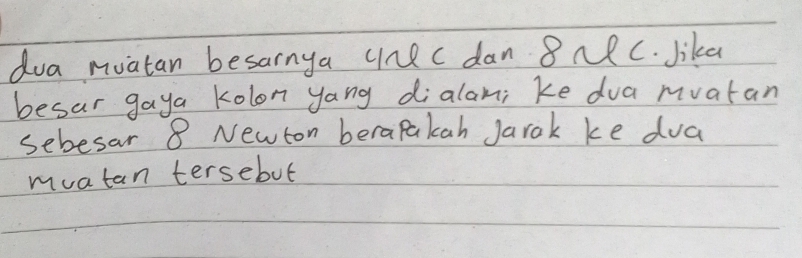 dua muatan besarnya 4 μC dan 8 μC. Jika
besar gaya Kolom yang dialami ke dua muatan
sebesar 8 Newton berapakah Jarak ke dua
muatan tersebut